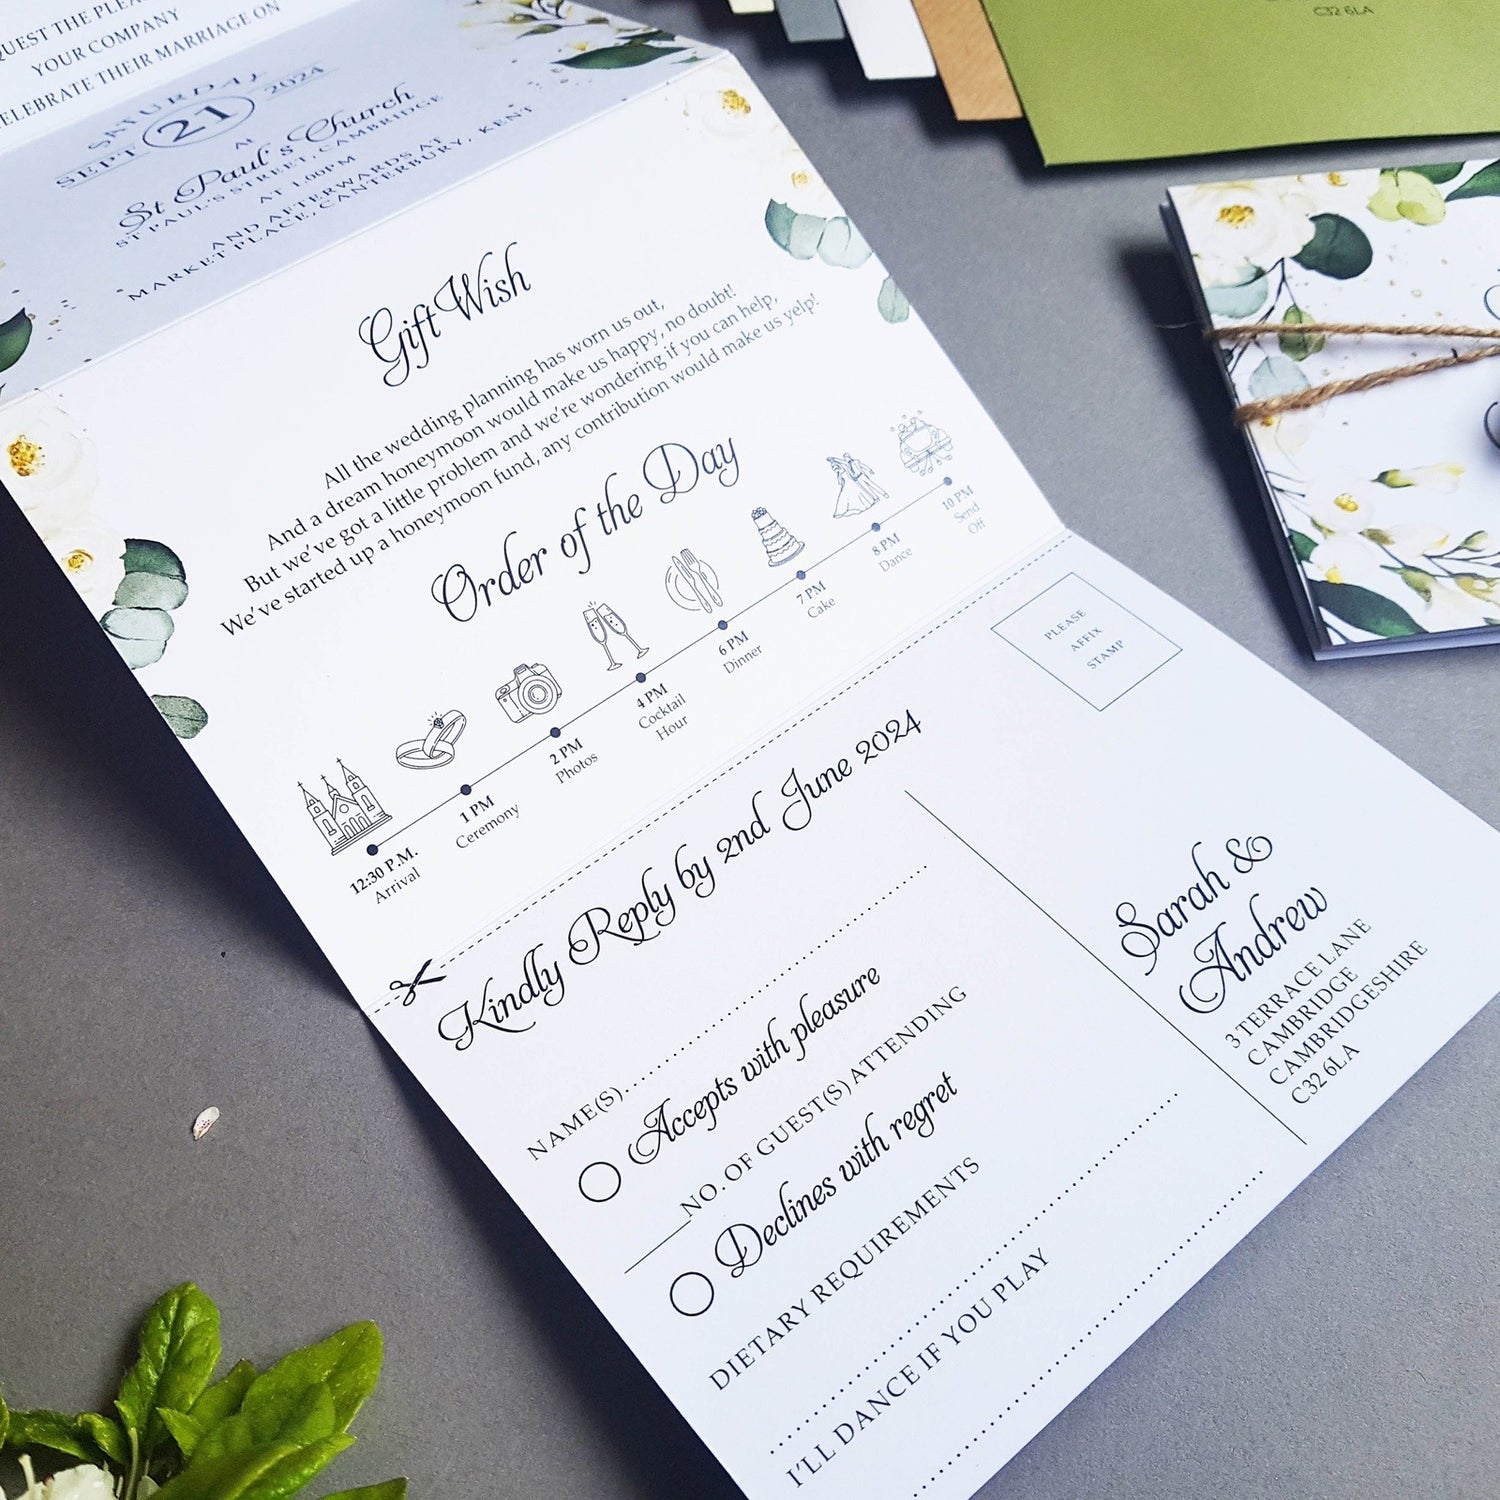 QUEST THE PLEA
YOUR COMPANY
CELEBRATE THEIR MARRIAGE ON
SATURDAY
SEPT 21 2024
AT
St Paul's Church
ST PAUL'S STREET, CAMBRIDGE
AT 1.00PM
AND AFTERWARDS AT
MARKET PLACE, CANTERBURY, KENT
Gift Wish
All the wedding planning has worn us out,
And a dream honeymoon would make us happy, no doubt!
But we've got a little problem and we're wondering if you can help,
We've started up a honeymoon fund, any contribution would make us yelp!
Order of the Day
12:30 P.M.
Arrival
1 PM
Ceremony
2 PM
Photos
4 PM
Cocktail
Hour
6 PM
Dinner
7 PM
Cake
8 PM
Dance
10 PM
Send
Off
Kindly Reply by 2nd June 2024
NAME(S)
Accepts with pleasure
NO. OF GUEST(S) ATTENDING
Declines with regret
DIETARY REQUIREMENTS
I'LL DANCE IF YOU PLAY
PLEASE
AFFIX
STAMP
Sarah &
Andrew
3 TERRACE LANE
CAMBRIDGE
CAMBRIDGESHIRE
C32 6LA
C32 6LA